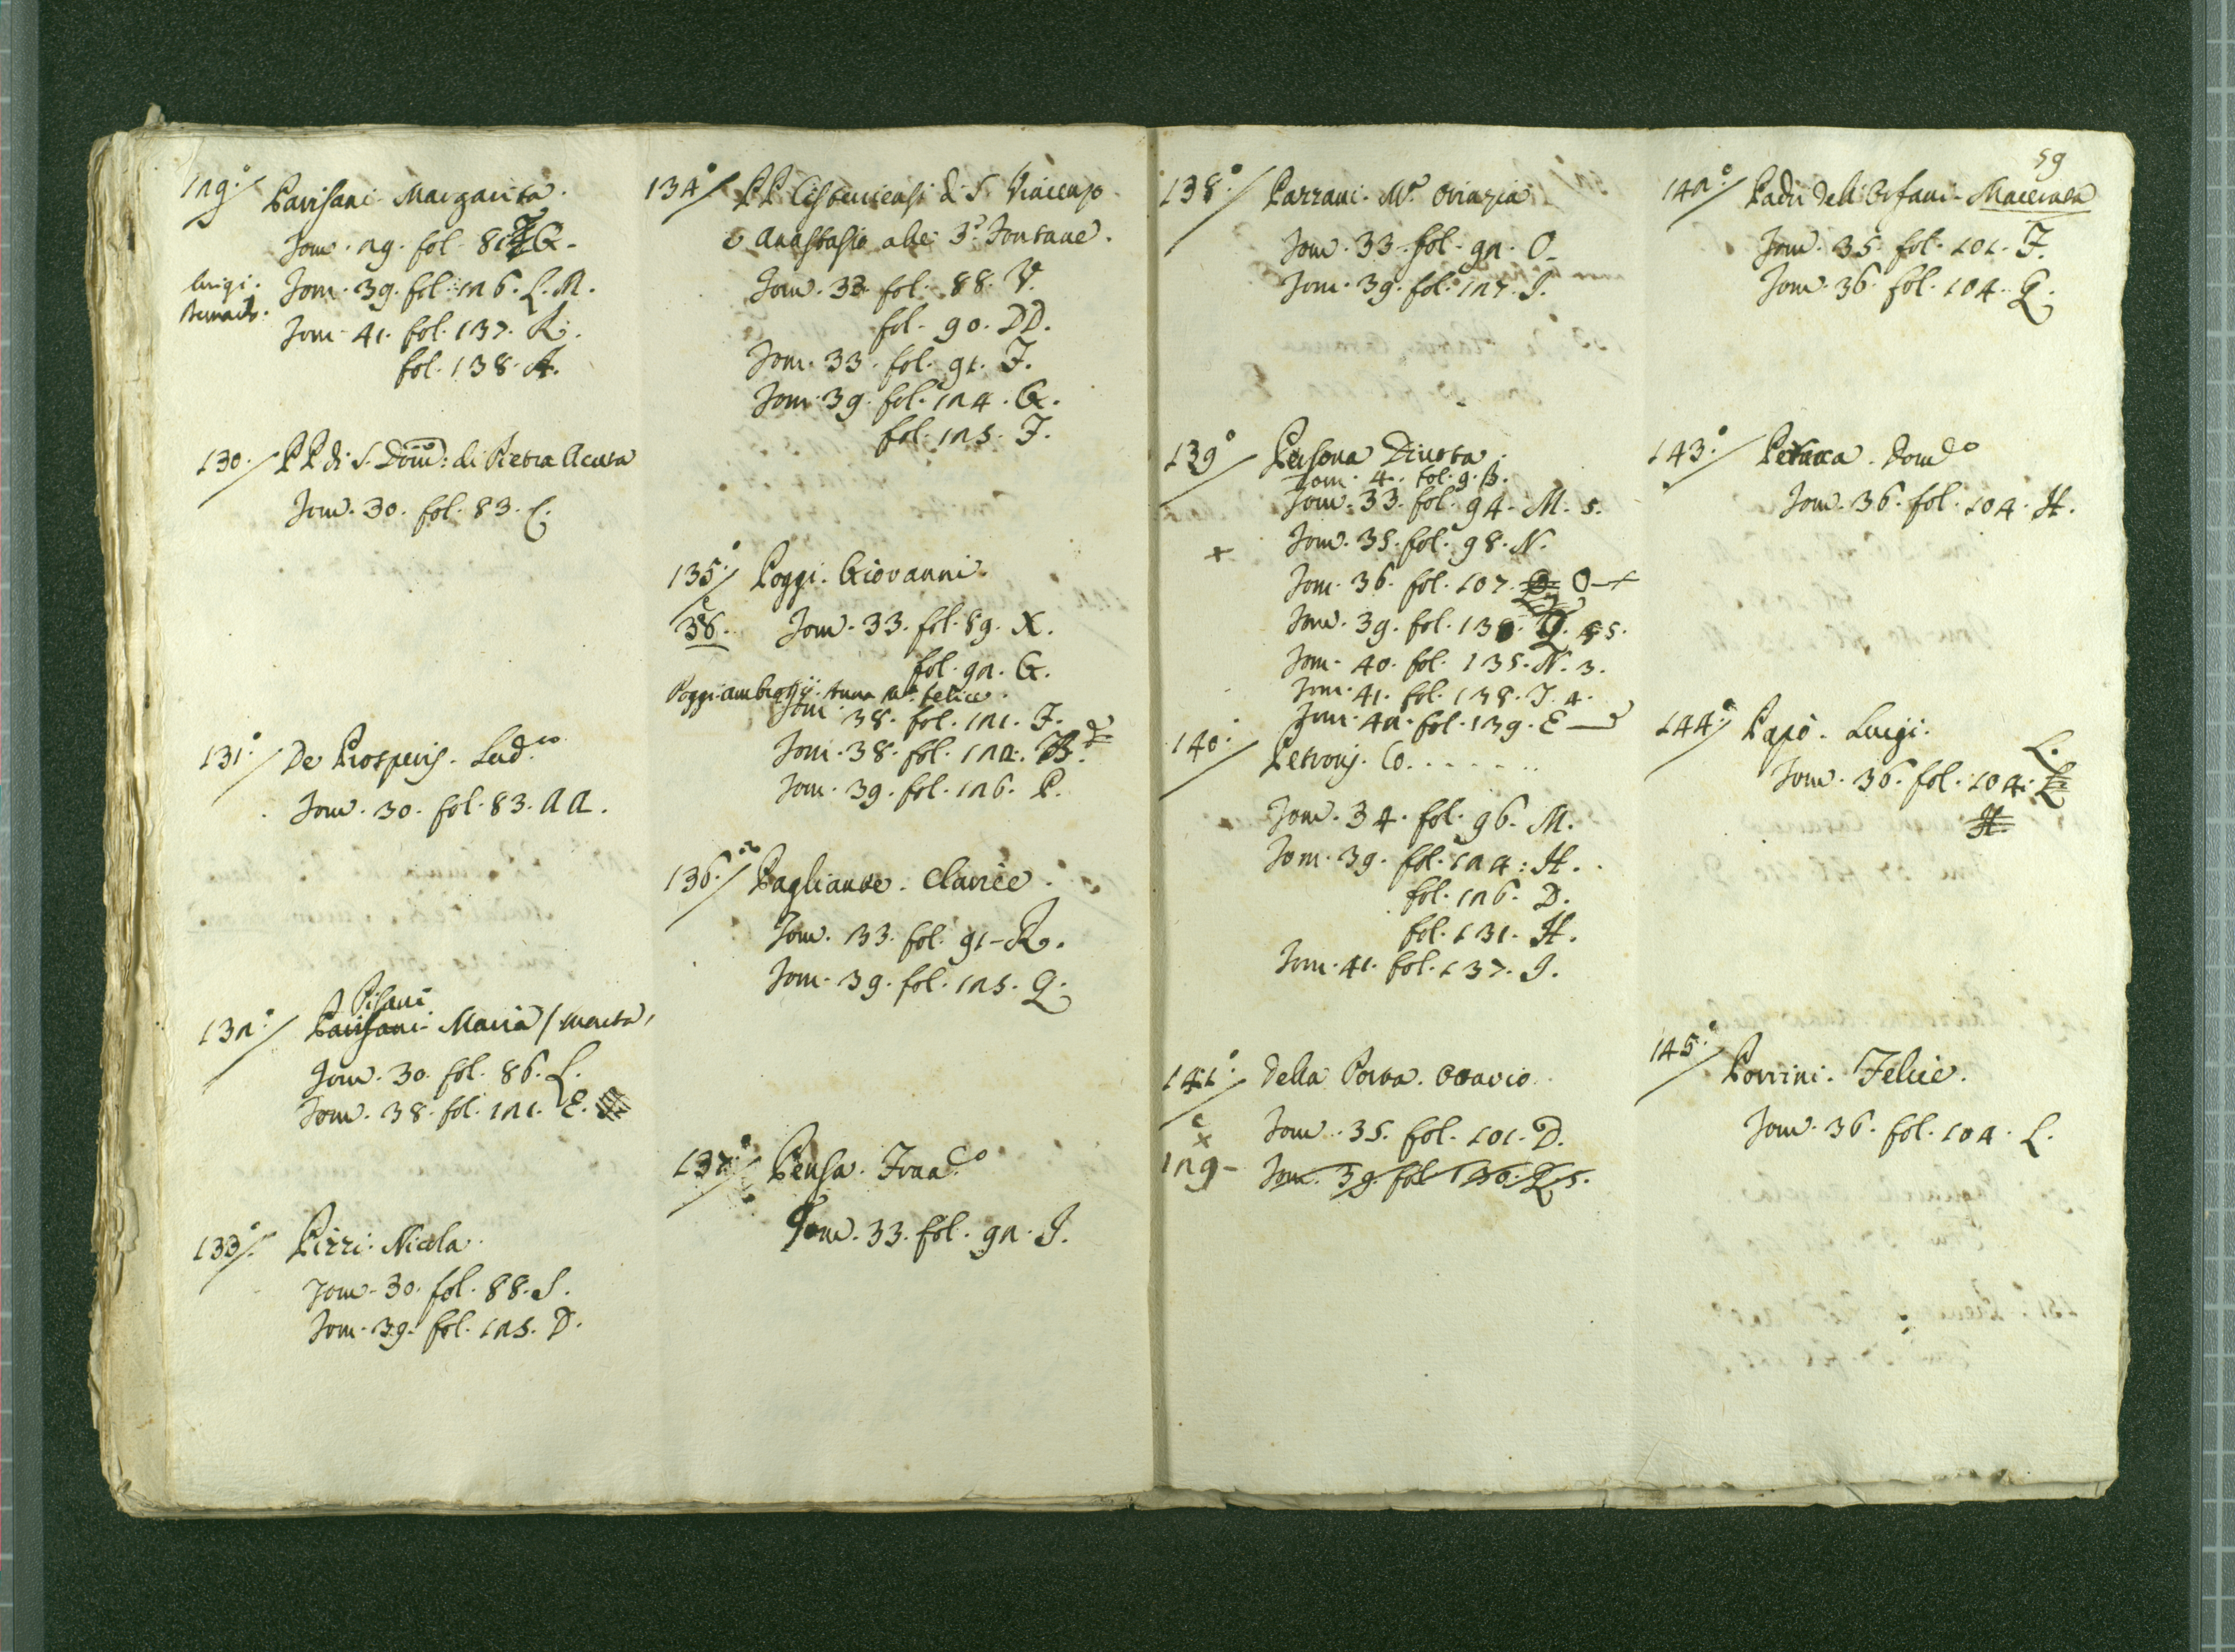 129.° Parisani Margarita.
Tom. 29. fol. 81. G.
Luigi. Tom. 39. fol. 126. L. M.
Tom. 41. fol. 137. R.
fol. 138. A.
130. PP. di S. Dom.co: di Pietra Acuta
Tom. 30. fol. 83. C.
131.° De Prosperis. Lud.co
Tom. 30. fol. 83. AA.
Pisani
132.° Parisani Maria / morta,
Tom. 30. fol. 86. L.
Tom. 38. fol. 121. E.
133.° Pizzi. Nicola.
Tom. 30. fol. 88. S.
Tom. 39. fol. 125. D.
134.° PP. Cisterciensi di S. Vincenzo
e Anastasio alle 3.e Fontane.
Tom. 33. fol. 88. V.
fol. 90. DD.
Tom. 33. fol. 91. F.
Tom. 39. fol. 124. G.
fol. 125. F.
135.° Poggi. Giovanni.
38. Tom. 33. fol. 89. X.
fol. 92. G.
Poggi Ambrosij. Anna M.a Felice.
Tom. 38. fol. 121. F.
Tom. 38. fol. 122. B.
Tom. 39. fol. 126. P.
136.° Pagliante. Clarice.
Tom. 33. fol. 91. R.
Tom. 39. fol. 125. Q.
137.° Pensa. Fran.co
Tom. 33. fol. 92. I.
138.° Pazzani. M.a Orinzia
Tom. 33. fol. 92. O.
Tom. 39. fol. 127. I.
139.° Persona Divota.
Tom. 4. fol. 9. B.
Tom. 33. fol. 94. M. 5.
+ Tom. 35. fol. 98. N.
Tom. 36. fol. 107. O +
Tom. 39. fol. 130. Q. 5.
Tom. 40. fol. 135. N. 3.
Tom. 41. fol. 138. I. 4.
Tom. 42. fol. 139. E
140.° Petronj. Co. . . . . . .
Tom. 34. fol. 96. M.
Tom. 39. fol. 124. H.
fol. 126. D.
fol. 131. H.
Tom. 41. fol. 137. I.
141.° Della Porta. Ottavio.
Tom. 35. fol. 101. D.
+
129 - Tom. 39. fol. 130. Q. 5.
59
142.° Padri delli Orfani. Macerata
Tom. 35. fol. 101. F.
Tom. 36. fol. 104. Q.
143.° Petracca. Dom.co
Tom. 36. fol. 104. H.
144.° Papò. Luigi.
L.
Tom. 36. fol. 104.
H.
145.° Porrini. Felice.
Tom. 36. fol. 104. L.